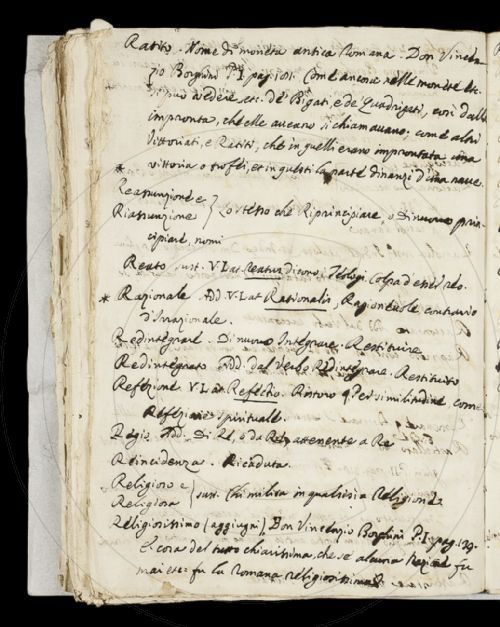 Ratito. Nome di moneta antica Romana. Don Vincen-
zio Borghini P. I. pag. 181. Come ancora nelle monete etc.
si può vedere, etc. de' Bigati, e de Quadrigati, così dalla
impronta, che elle aveano si chiamavano; come altri
Vittoriati, e Ratiti, che in quelli erano improntata una
vittoria o trofei, et in questi la parte dinanzi d'una nave.
*
Reassunzione e
Riassunzione } Lo stesso che Riprincipiare, o Di nuovo prin-
cipiare, nomi
Reato sust. V. Lat. Reatus dicono i Teologi. Colpa d'esser reo.
* Razionale. Add. V. Lat. Rationalis, Ragionevole contrario
d'Irrazionale.
Redintegrare. Di nuovo Integrare. Restituire
Redintegrato Add. dal Verbo Redintegrare. Restituito
Refezione V. Lat. Refectio. Ristoro Per similitudine come
Refezione spirituale.
Regio. Add. Di Re, o da Re, attenente a Re
Reincidenza. Ricaduta.
Religioso e
Religiosa } sust. Chi milita in qualsisia Religione
Religiosissimo (aggiugni) Don Vincenzio Borghini P. I. pag. 129.
E cosa del tutto chiarissima, che se alcuna Nazione fu
mai etc. fu la Romana religiosissima